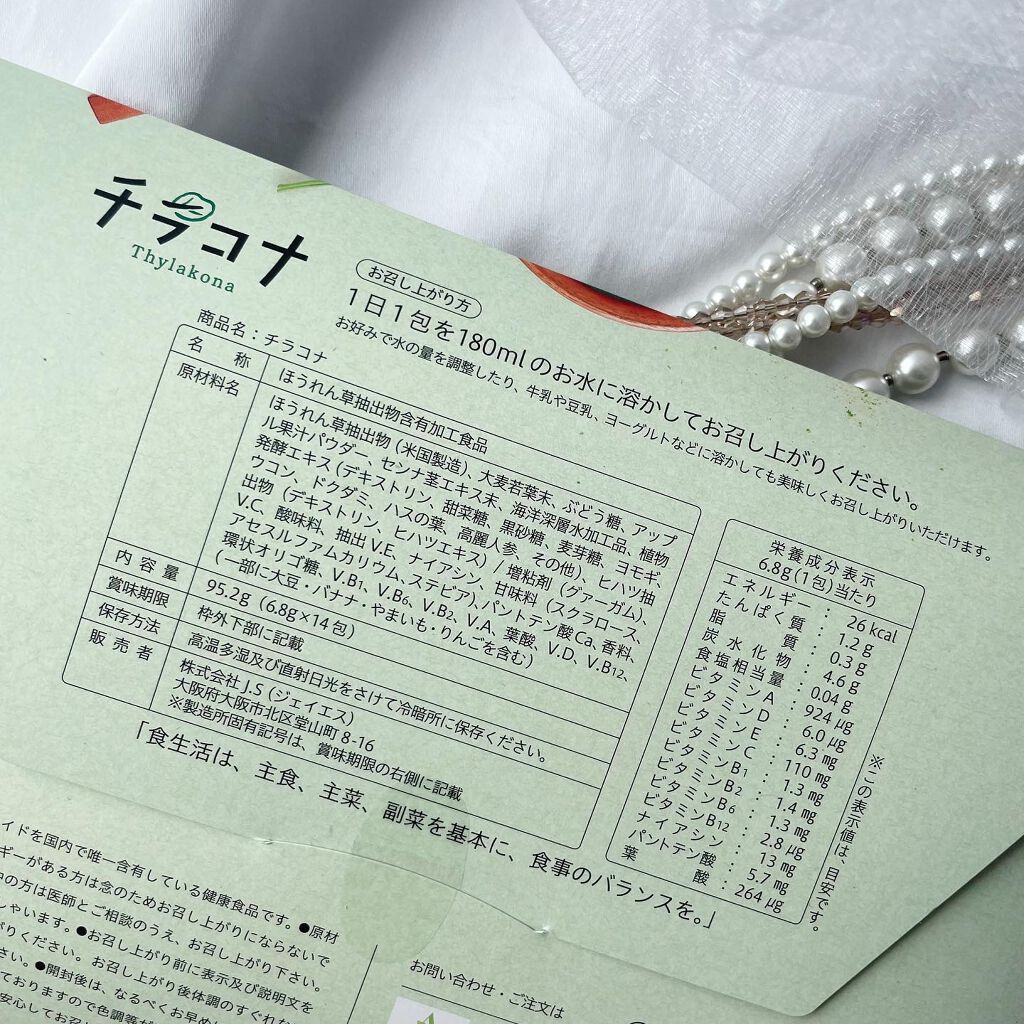 チラコナ
Thylakona
お召し上がり方
1日1包を180mlのお水に溶かしてお召し上がりください。
お好みで水の量を調整したり、牛乳や豆乳、ヨーグルトなどに溶かしても美味しくお召し上がりいただけます。
商品名：チラコナ
名 称 ほうれん草抽出物含有加工食品
原材料名 ほうれん草抽出物（米国製造）、大麦若葉末、ぶどう糖、アップ
ル果汁パウダー、センナ茎エキス末、海洋深層水加工品、植物
発酵エキス（デキストリン、甜菜糖、黒砂糖、麦芽糖、ヨモギ、
ウコン、ドクダミ、ハスの葉、高麗人参、その他）、ヒハツ抽
出物（デキストリン、ヒハツエキス）/ 増粘剤（グァーガム）、
V.C、酸味料、抽出V.E、ナイアシン、甘味料（スクラロース、
アセスルファムカリウム、ステビア）、パントテン酸Ca、香料、
環状オリゴ糖、V.B1、V.B6、V.B2、V.A、葉酸、V.D、V.B12、
（一部に大豆・バナナ・やまいも・りんごを含む）
内 容 量 95.2g（6.8g×14包）
賞味期限 枠外下部に記載
保存方法 高温多湿及び直射日光をさけて冷暗所に保存ください。
販 売 者 株式会社 J.S（ジェイエス）
大阪府大阪市北区堂山町 8-16
※製造所固有記号は、賞味期限の右側に記載
「食生活は、主食、主菜、副菜を基本に、食事のバランスを。」
栄養成分表示
6.8g（1包）当たり
エネルギー：26 kcal
たんぱく質：1.2 g
脂 質：0.3 g
炭 水 化 物：4.6 g
食塩相当量：0.04 g
ビタミンA：924 μg
ビタミンD：6.0 μg
ビタミンE：6.3 mg
ビタミンC：110 mg
ビタミンB1：1.3 mg
ビタミンB2：1.4 mg
ビタミンB6：1.3 mg
ビタミンB12：2.8 μg
ナイアシン：13 mg
パントテン酸：5.7 mg
葉 酸：264 μg
※この表示値は、目安です。
イドを国内で唯一含有している健康食品です。●原材
ギーがある方は念のためお召し上がりにならないで
中の方は医師とご相談のうえ、お召し上がり下さい。
しゃいます。●お召し上がり前に表示及び説明文を
がりください。お召し上がり後体調のすぐれな
さい。●開封後は、なるべくお早め
ておりますので色調等が
安心してお召し
お問い合わせ・ご注文は